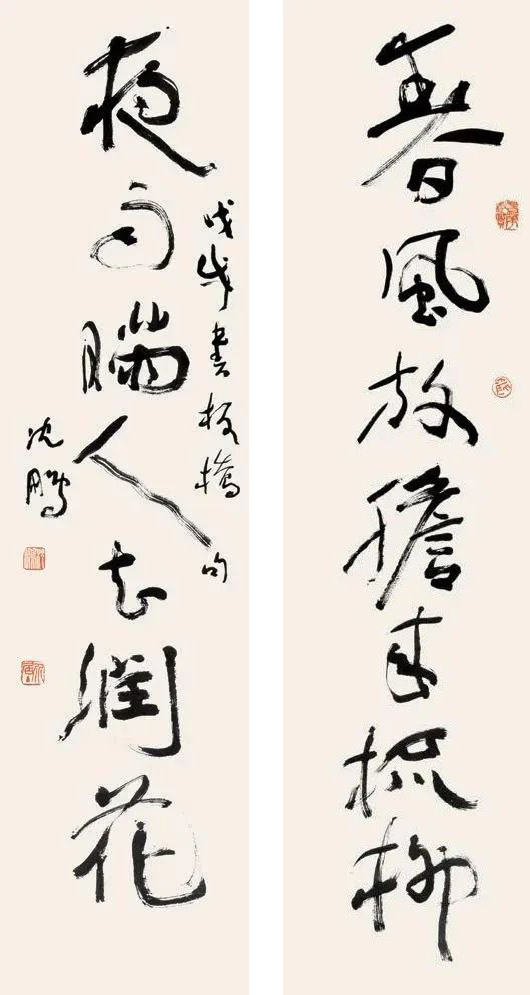 春風放膽來梳柳
夜雨瞞人去潤花
戊 書板橋句
沈鵬